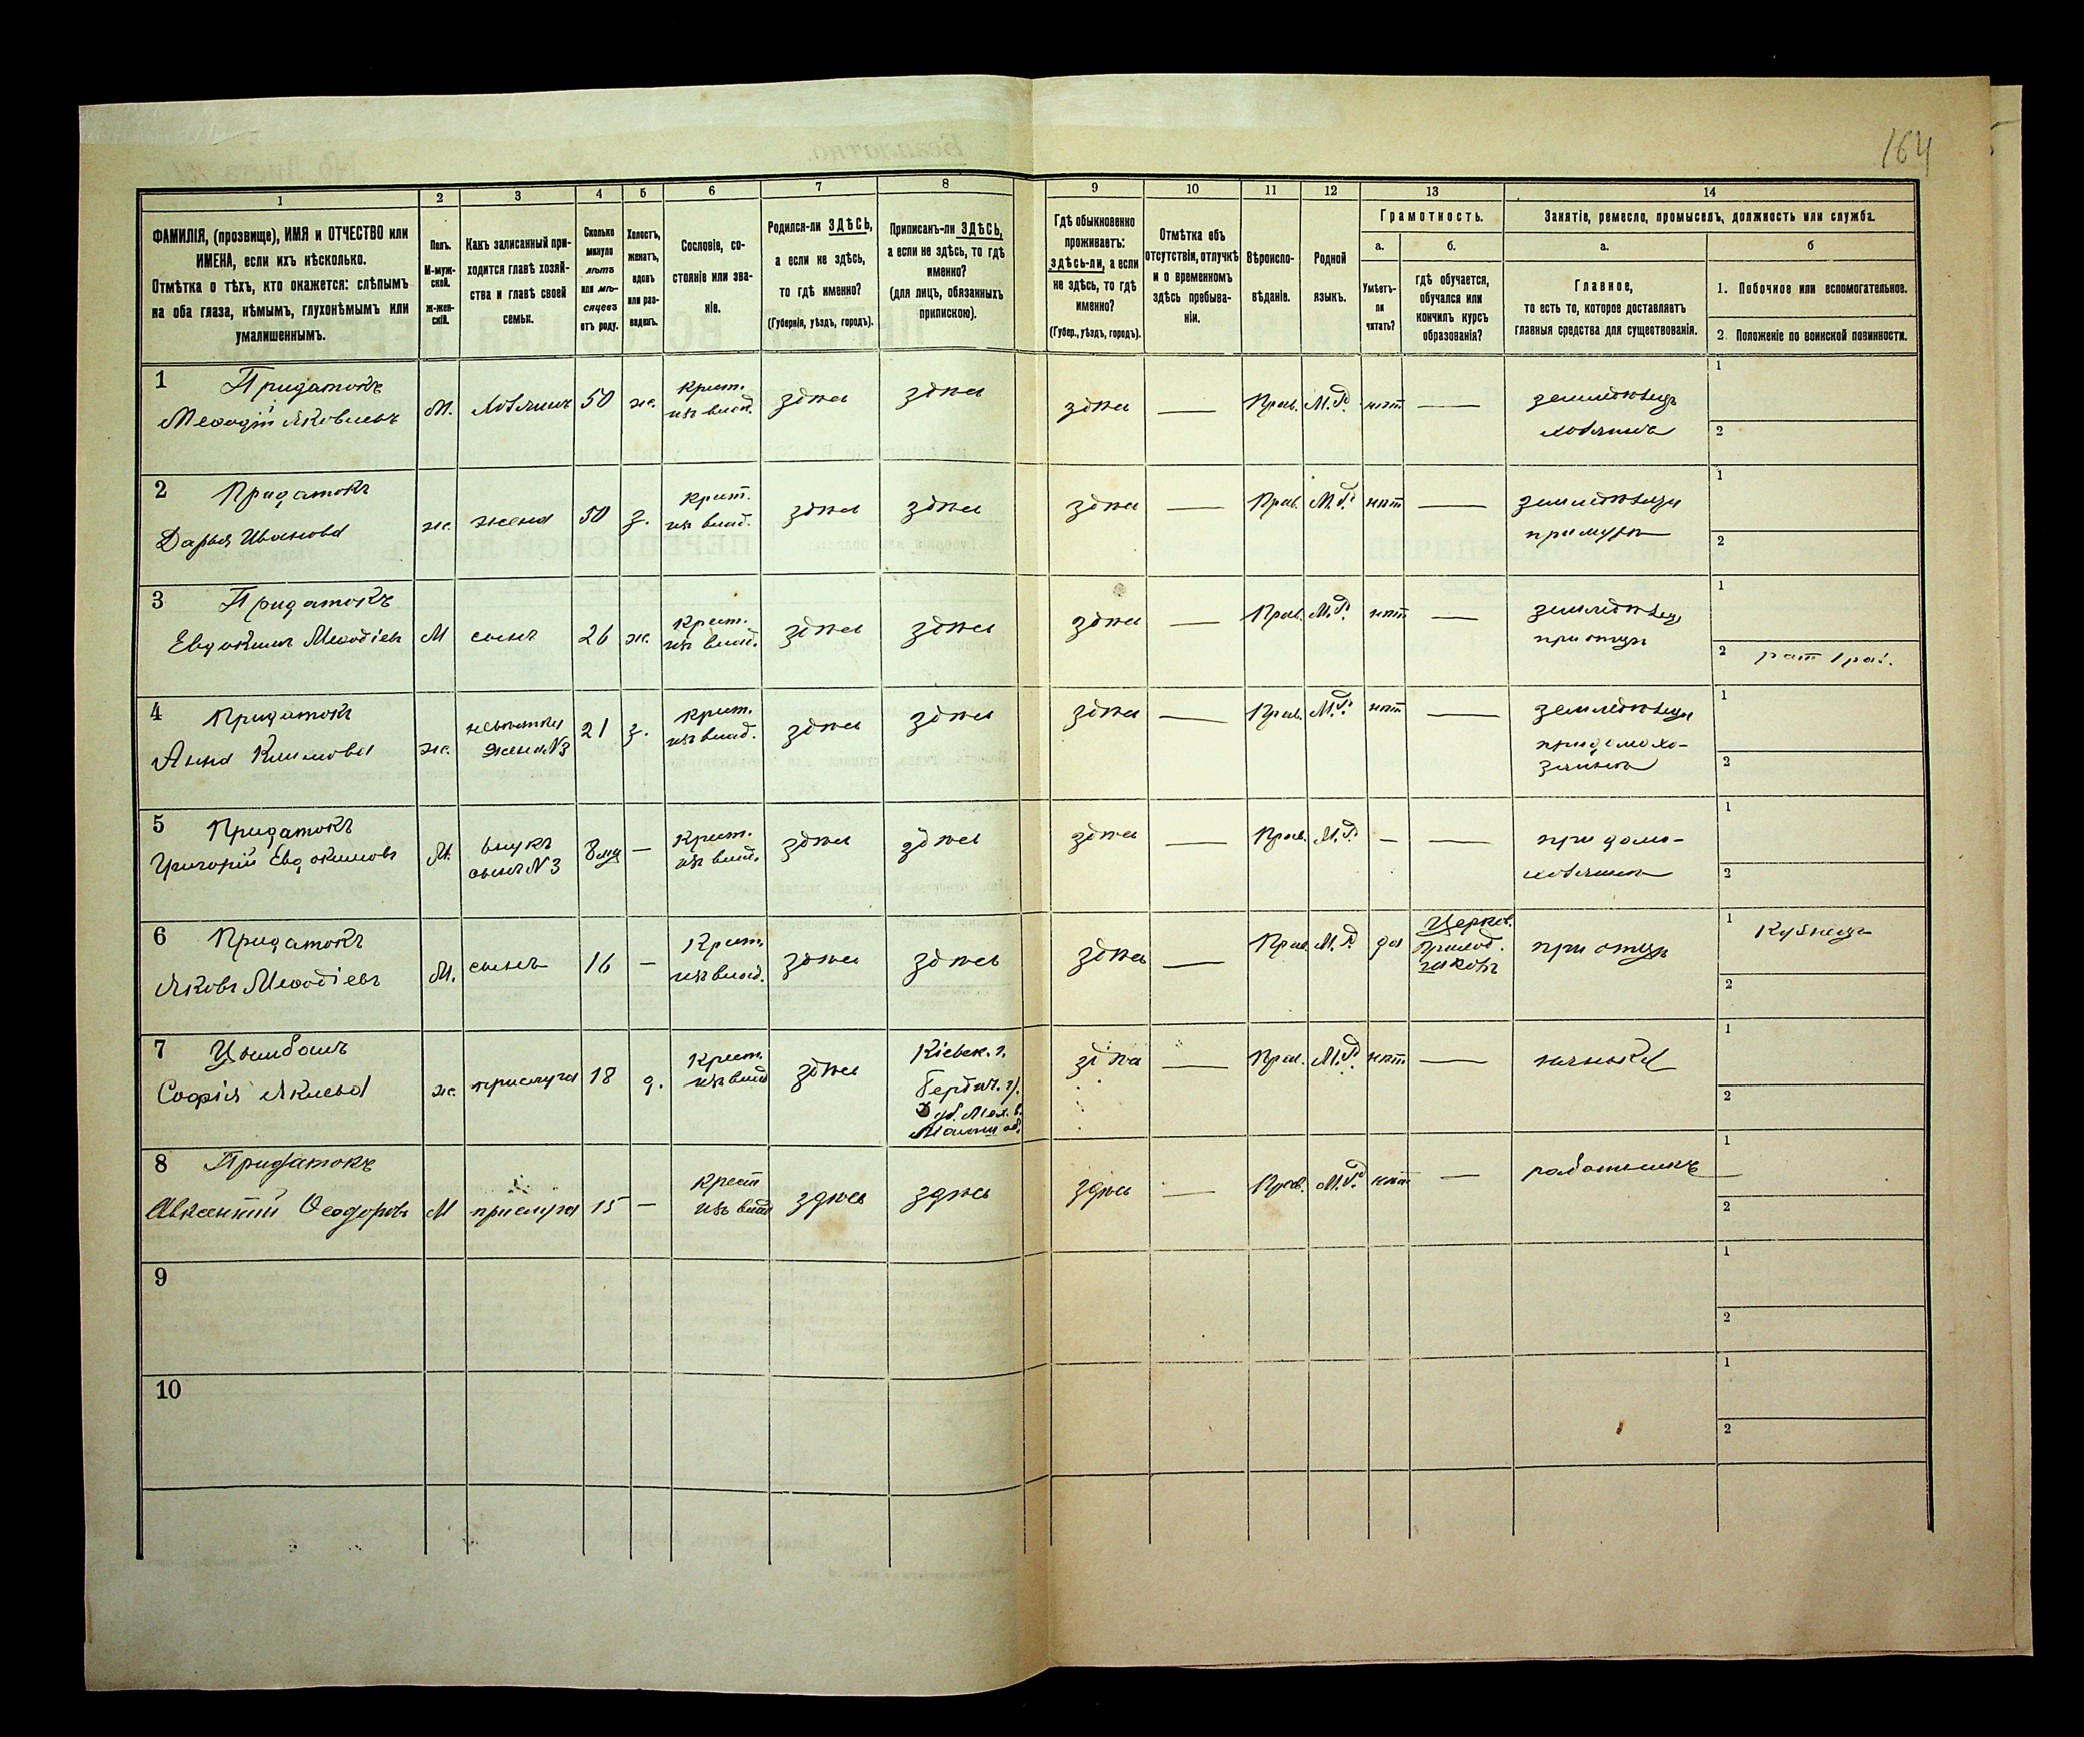 164
1 2 3 4 5 6 7 8 9 10 11 12 13 14
ФАМИЛІЯ, (прозвище), ИМЯ и ОТЧЕСТВО или
ИМЕНА, если ихъ нѣсколько.
Отмѣтка о тѣхъ, кто окажется: слѣпымъ
на оба глаза, нѣмымъ, глухонѣмымъ или
умалишеннымъ.
Полъ.
М-муж-
ской.
ж-жен-
скій.
Какъ записанный при-
ходится главѣ хозяй-
ства и главѣ своей
семьи.
Сколько
минуло
лѣтъ
или мѣ-
сяцевъ
отъ роду.
Холостъ,
женатъ,
вдовъ
или раз-
веденъ.
Сословіе, со-
стояніе или зва-
ніе.
Родился-ли ЗДѢСЬ,
а если не здѣсь,
то гдѣ именно?
(Губернія, уѣздъ, городъ).
Приписанъ-ли ЗДѢСЬ,
а если не здѣсь, то гдѣ
именно?
(для лицъ, обязанныхъ
припискою).
Гдѣ обыкновенно
проживаетъ:
здѣсь-ли, а если
не здѣсь, то гдѣ
именно?
(Губер., уѣздъ, городъ).
Отмѣтка объ
отсутствіи, отлучкѣ
и о временномъ
здѣсь пребыва-
ніи.
Вѣроиспо-
вѣданіе.
Родной
языкъ.
Грамотность.
а.
Умѣетъ-
ли
читать?
б.
гдѣ обучается,
обучался или
кончилъ курсъ
образованія?
Занятіе, ремесло, промыселъ, должность или служба.
а.
Главное,
то есть то, которое доставляетъ
главныя средства для существованія.
б
1. Побочное или вспомогательное.
2. Положеніе по воинской повинности.
1 Придатокъ
Меѳодій Яковлевъ
М.
Хозяинъ
50
ж.
крест.
изъ влад.
здѣсь
здѣсь
здѣсь
—
Прав.
М.Р.
нѣт
—
земледѣлецъ
хозяинъ
1
2
2 Придатокъ
Дарья Иванова
ж.
жена
50
з.
крест.
изъ влад.
здѣсь
здѣсь
здѣсь
—
Прав.
М.Р.
нѣт
—
земледѣлецъ
при мужѣ
1
2
3 Придатокъ
Евдокимъ Меѳодіевъ
М
сынъ
26
ж.
Крест.
изъ влад.
здѣсь
здѣсь
здѣсь
—
Прав.
М.Р.
нѣт
—
земледѣлец
при отцѣ
1
2 рат 1 раз.
4 Придатокъ
Анна Климова
ж.
невѣстка
жена №3
21
з.
крест.
изъ влад.
здѣсь
здѣсь
здѣсь
—
Прав.
М.Р.
нѣт
—
земледѣлецъ
при домохо-
зяинѣ
1
2
5 Придатокъ
Григорій Евдокимовъ
М.
внукъ
сынъ №3
8 мѣ
—
Крест.
изъ влад.
здѣсь
здѣсь
здѣсь
—
Прав.
М.Р.
—
—
при домо-
хозяинѣ
1
2
6 Придатокъ
Яковъ Меѳодіевъ
М.
сынъ
16
—
Крест.
изъ влад.
здѣсь
здѣсь
здѣсь
—
Прав.
М.Р.
да
Церков.
приход.
школѣ
при отцѣ
1 Кузнецъ
2
7 Цымбалъ
Софія Якова
ж.
прислуга
18
д.
Крест.
изъ влад
здѣсь
Кіевск. г.
здѣсь
Прав.
М.Р.
нѣт.
—
нянька
1
2
8 Придатокъ
Авксентій Ѳеодоровъ
М
прислуга
15
—
крест
изъ влад
здѣсь
здѣсь
здѣсь
—
Прав.
М.Р.
нѣт
—
работникъ
1
2
9
1
2
10
1
2